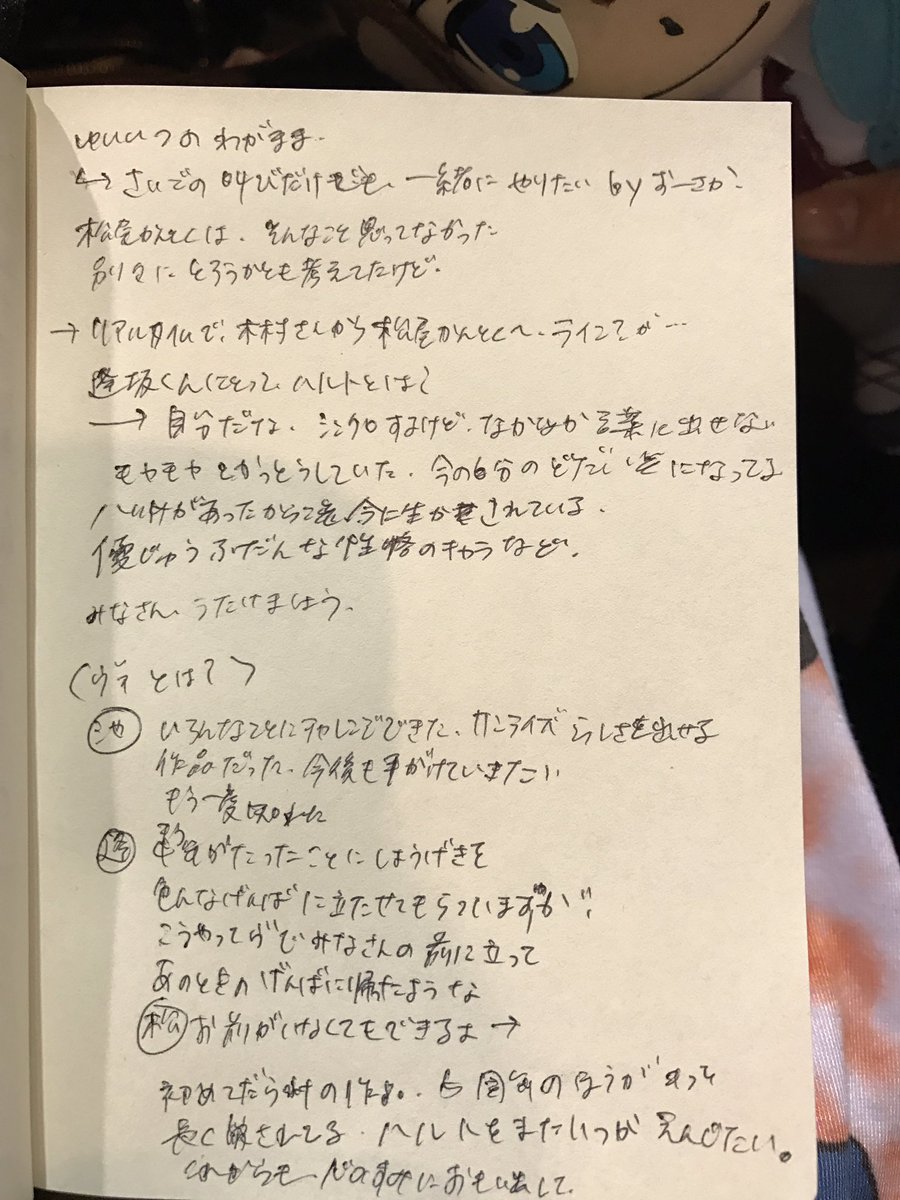 ゆいいつの わがまま.
↪ さいごの 叫びだけは、一緒に やりたい by おーさか.
松尾かんとくは、そんなこと思ってなかった
別々に とろうかとも考えてたけど.
→ リアルタイムで、木村さんから 松尾かんとくへ、ラインで が…
逢坂くんにとって、ハルトとは?
→ 自分だな、シンクロするけど、なかなか言葉に出せない
モヤモヤとかっとうしていた、今の自分の どだい になってる
ハルトがあったからって 今に生かされている.
優じゅうふだんな性格のキャラなど.
みなさん、うたけましょう.
(ヴヴ とは?)
池 いろんなことにチャレンジできた、サンライズ らしさを出せる
作品だった、今後も手がけていきたい
もう一度
逢 年がたったことに しょうげきを
色んなげんばに立たせてもらっていますが、
こうやってヴヴで みなさんの 前に立って
あのときの げんばに帰たような
松 お前がいなくてもできるよ →
初めてだらけの作品.
長く 残されてる. ハルトをまたいつか えんじたい。
これからも、かたすみにおもい出して.